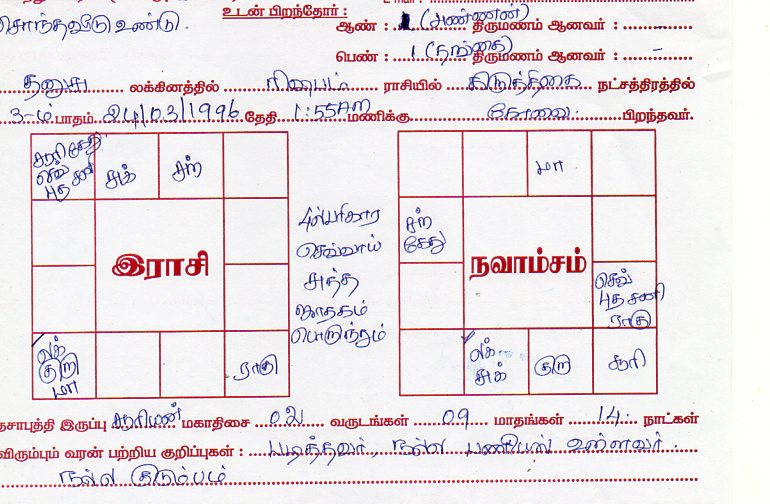 சொந்தவீடு உண்டு.
உடன் பிறந்தோர் :
ஆண் : 1 (அண்ணன்) திருமணம் ஆனவர் : -
பெண் : 1 (தங்கை) திருமணம் ஆனவர் : -
தனுசு லக்கினத்தில் ரிஷபம் ராசியில் கிருத்திகை நட்சத்திரத்தில்
3-ம் பாதம். 24/03/1996 தேதி 1:55AM மணிக்கு கோவை பிறந்தவர்.
சூரி கேது
செவ்
புத சனி
சுக்
சந்
இராசி
லக்
குரு
மா
ராகு
4ல் பரிகார
செவ்வாய்
சுத்த
ஜாதகம்
பொருந்தும்
மா
சந்
கேது
நவாம்சம்
செவ்
புத சனி
ராகு
லக்
சுக்
குரு
சூரி
தசாபுத்தி இருப்பு சூரியன் மகாதிசை 02 வருடங்கள் 09 மாதங்கள் 14 நாட்கள்
விரும்பும் வரன் பற்றிய குறிப்புகள் : படித்தவர், நல்ல பணியில் உள்ளவர்.
நல்ல குடும்பம்